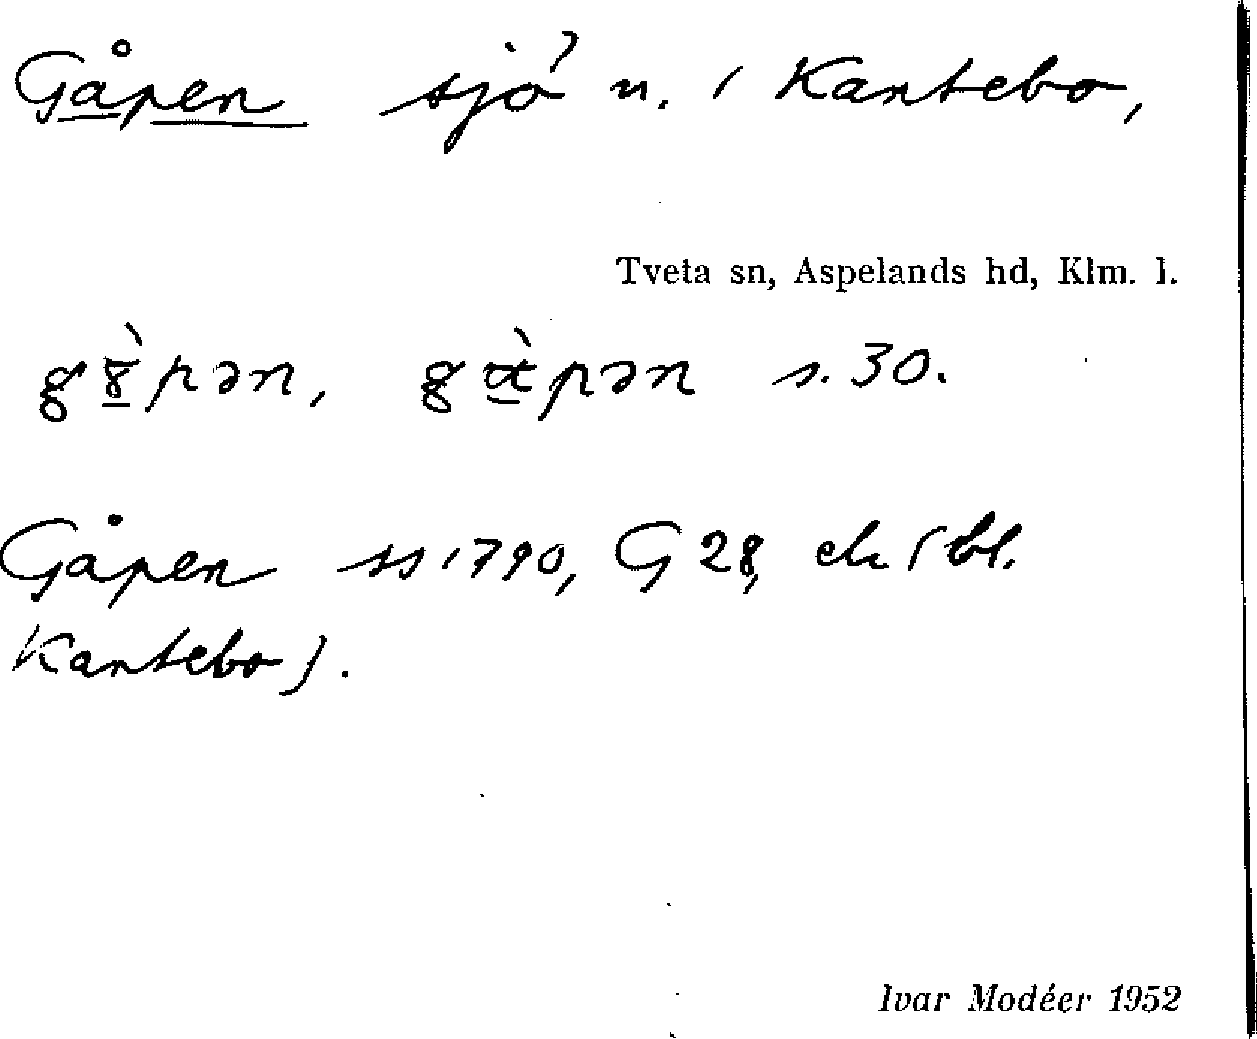 Gåpen sjö n. i Kantebo,
Tveta sn, Aspelands hd, Klm. l.
s. 30.
Gåpen ss 1790, G 28, ek (bl.
Kantebo).
Ivar Modéer 1952